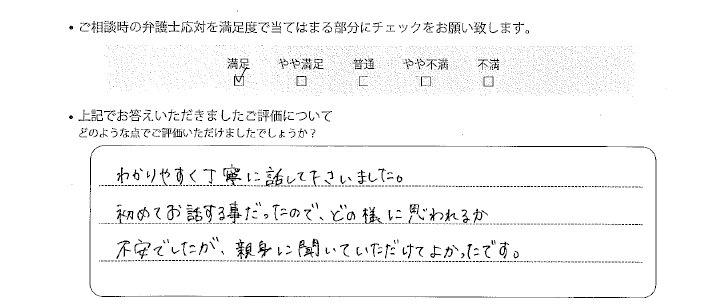 ・ご相談時の弁護士応対を満足度で当てはまる部分にチェックをお願い致します。
満足 やや満足 普通 やや不満 不満
☑ □ □ □ □
・上記でお答えいただきましたご評価について
どのような点でご評価いただけましたでしょうか？
わかりやすく丁寧に話して下さいました。
初めてお話する事だったので、どの様に思われるか
不安でしたが、親身に聞いていただけてよかったです。